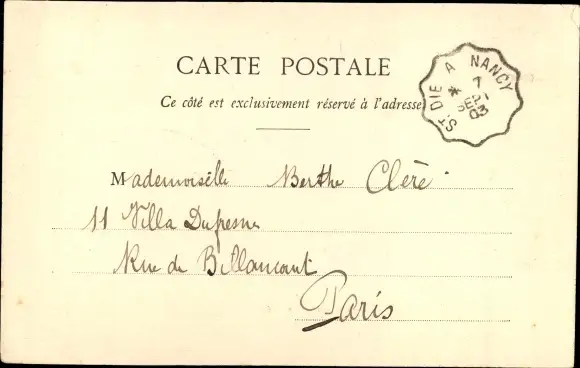 CARTE POSTALE
Ce côté est exclusivement réservé à l'adresse
ST DIE A NANCY
7
SEPT
03
Mademoiselle Berthe Cléré
11 Villa Dufresne
Rue de Billancourt
Paris